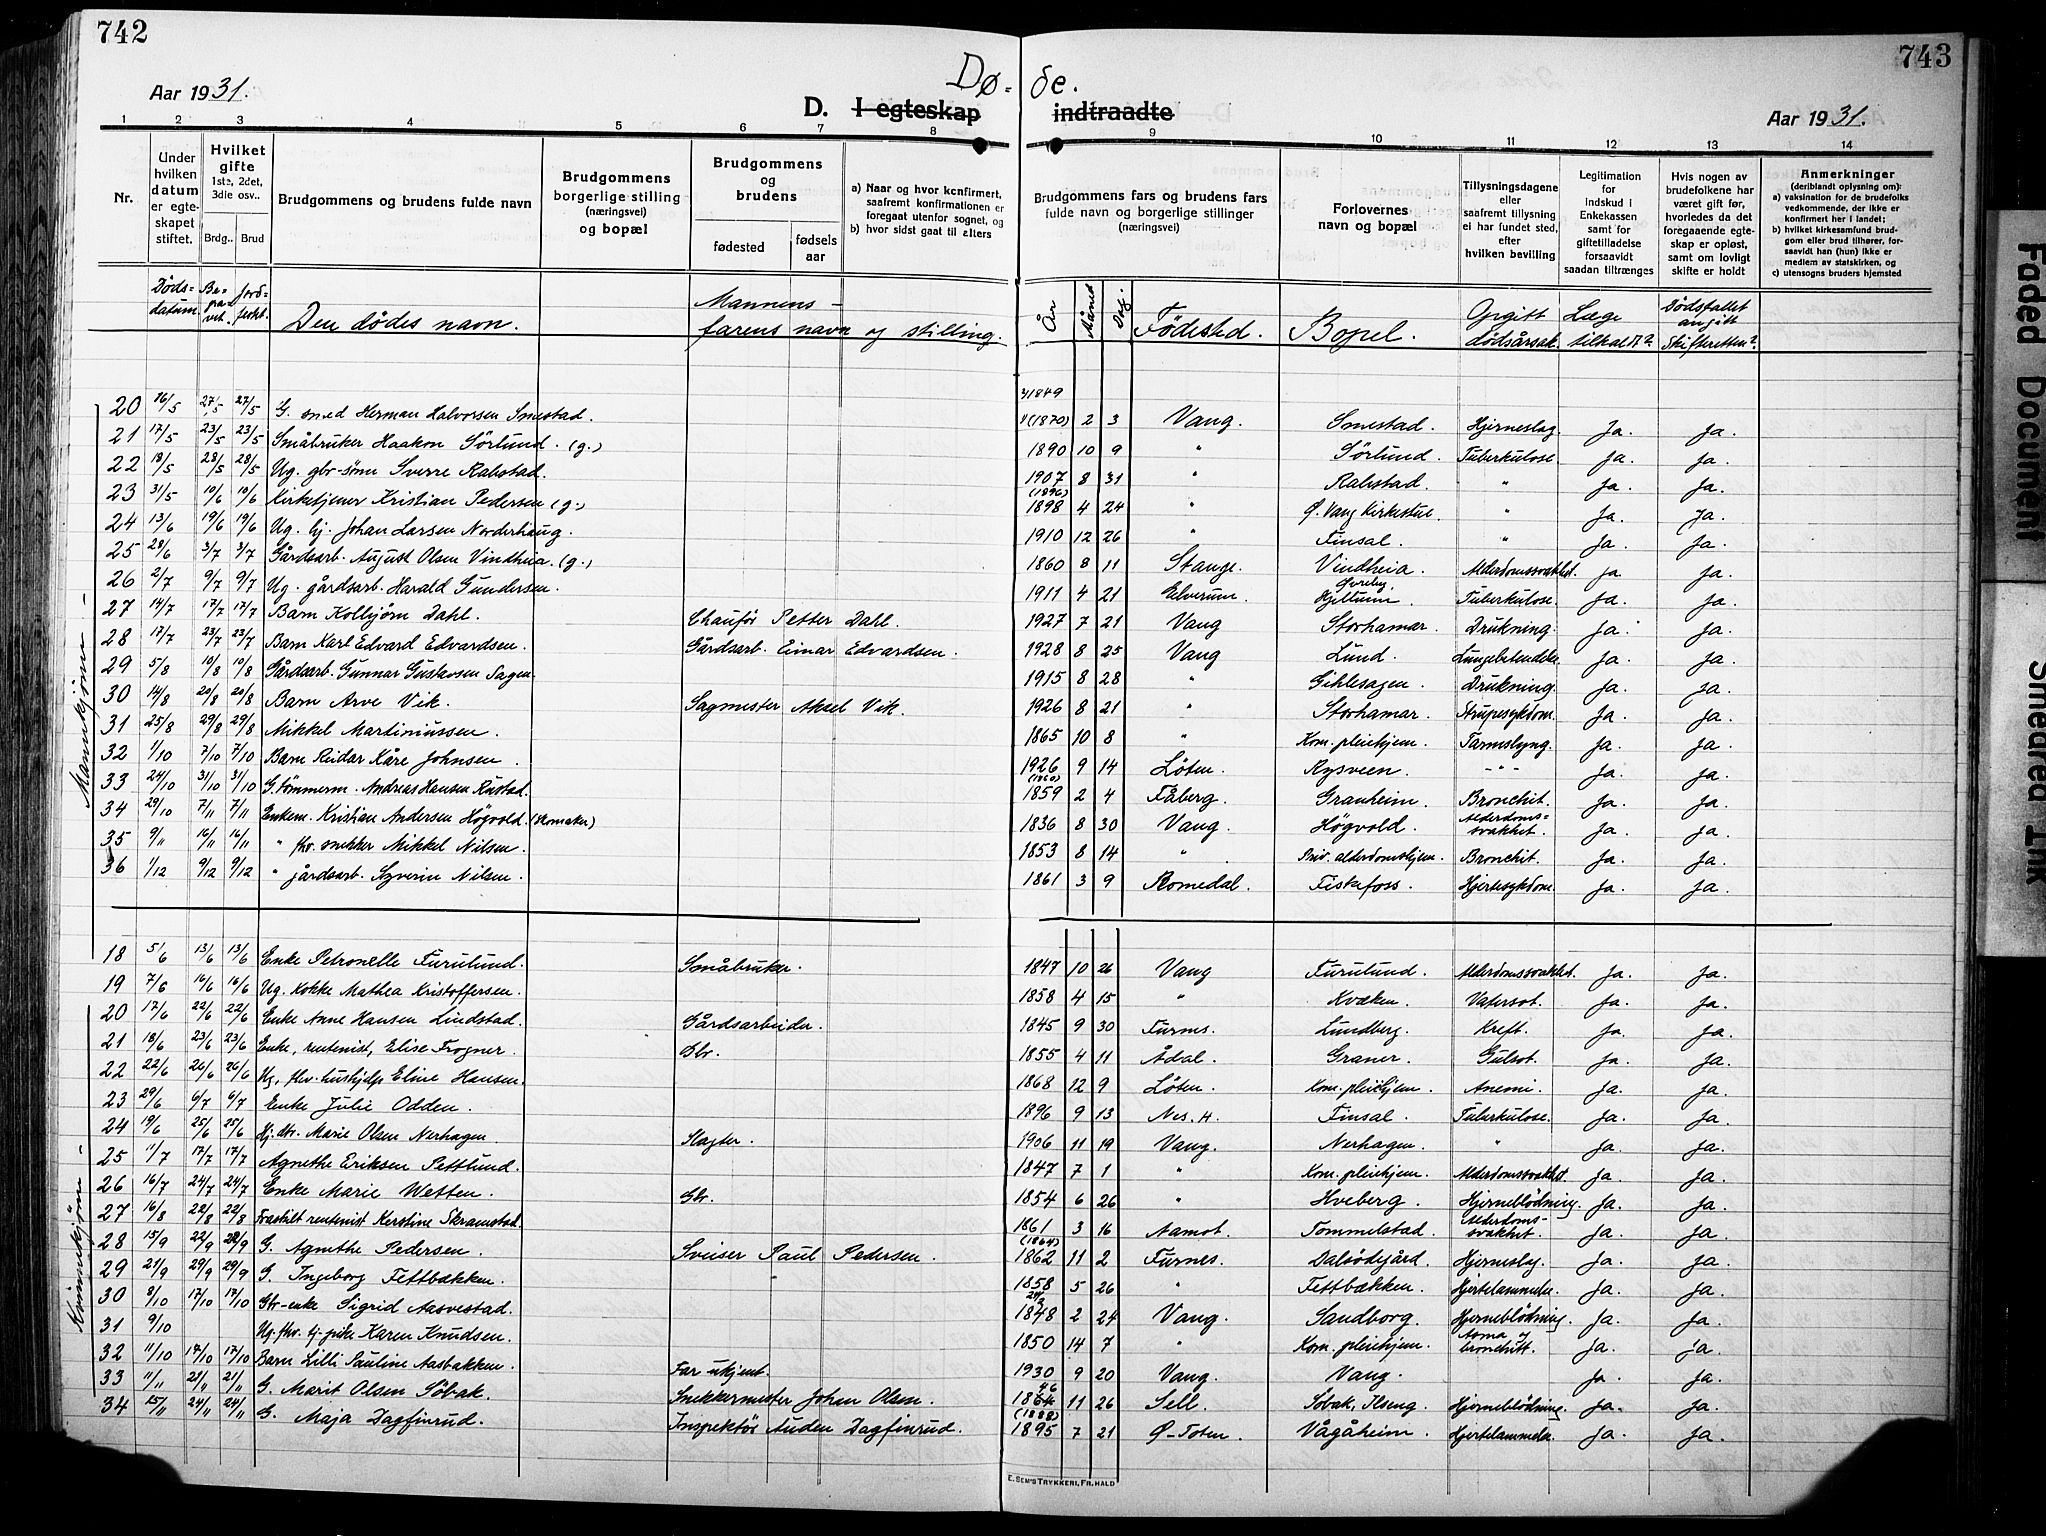 742
743
Aar 1931.
Dø-
de.
D. I egteskap
indtraadte
Aar 1931.
1 2 3 4 5 6 7 8 9 10 11 12 13 14
Nr.
Under hvilken datum er egteskapet stiftet.
Hvilket gifte 1ste, 2det, 3die osv..
Brdg.. Brud
Brudgommens og brudens fulde navn
Brudgommens borgerlige stilling (næringsvei) og bopæl
Brudgommens og brudens
fødested
fødsels aar
a) Naar og hvor konfirmert, saafremt konfirmationen er foregaat utenfor sognet, og
b) hvor sidst gaat til alters
Brudgommens fars og brudens fars fulde navn og borgerlige stillinger (næringsvei)
Forlovernes navn og bopæl
Tillysningsdagene eller saafremt tillysning ei har fundet sted, efter hvilken bevilling
Legitimation for Indskud i Enkekassen samt for giftetilladelse forsaavidt saadan tiltrænges
Hvis nogen av brudefolkene har været gift før, hvorledes da det foregaaende egteskap er opløst, samt om lovligt skifte er holdt
Anmerkninger (deriblandt oplysning om):
a) vaksination for de brudefolks vedkommende, der ikke er konfirmert her i landet;
b) hvilket kirkesamfund brudgom eller brud tilhører, forsaavidt han (hun) ikke er medlem av statskirken, og
c) utensogns bruders hjemsted
Døds-datum. Be-gra-vet. Jord-festet. Den dødes navn. Mannens - farens navn og stilling. År Måned Dag. Födested. Bopel. Opgitt dødsårsak. Læge tilkalt? Dødsfallet angitt Skifteretten?
Mannkjønn -
20 16/5 27/5 27/5 G. smed Herman Halvorsen Smestad. 3/1849 4(1870) 2 3 Vang. Smestad. Hjerneslag. Ja. Ja.
21 17/5 23/5 23/5 Småbruker Haakon Sörlund. (g.) 1890 10 9 " Sørlund. Tuberkulose. Ja. Ja.
22 18/5 28/5 28/5 Ug. gbr-sønn Sverre Rabstad. 1907 8 31 " Rabstad. " Ja. Ja.
23 31/5 10/6 10/6 Kirketjener Kristian Pedersen (g.) (1896) 1898 4 24 " Ø. Vang Kirkestue. " Ja. Ja.
24 13/6 19/6 19/6 Ug. hj. Johan Larsen Norderhaug. 1910 12 26 Finsal. " Ja. Ja.
25 28/6 3/7 3/7 Gårdsarb. August Olsen Vindheia. (g.) 1860 8 11 Stange. Vindheia. Alderdomssvakhet. Ja Ja.
26 2/7 9/7 9/7 Ug. gårdsarb. Harald Gundersen. 1911 4 21 Elverum. Hjellum. Tuberkulose. Ja. Ja.
27 14/7 17/7 17/7 Barn Kolbjørn Dahl. Chauför Petter Dahl. 1927 7 21 Vang Storhamar. Drukning. Ja. Ja.
28 17/7 23/7 23/7 Barn Karl Edvard Edvardsen. Gårdsarb. Einar Edvardsen. 1928 8 25 Vang Lund. Lungebetendelse. Ja. Ja.
29 5/8 10/8 10/8 Gårdsarb. Gunnar Gustavsen Sagen. 1915 8 28 " Gihlesagen. Drukning. Ja. Ja.
30 14/8 20/8 20/8 Barn Arve Vik. Sagmester Aksel Vik. 1926 8 21 " Storhamar. Strupesykdom. Ja. Ja.
31 25/8 29/8 29/8 Mikkel Martiniussen. 1865 10 8 " Kom. pleiehjem. Tarmslyng. Ja. Ja.
32 1/10 7/10 7/10 Barn Reidar Kåre Johnsen. 1926 9 14 Löten. Rysveen. -"- Ja. Ja.
33 24/10 31/10 31/10 G. tömmerm. Andreas Hansen Rustad. (1860) 1859 2 4 Fåberg. Granheim. Bronchit. Ja. Ja.
34 29/10 7/11 7/11 Enkem. Kristian Andersen Högvold. (skomaker) 1836 8 30 Vang. Högvold. Alderdoms-svakhet. Ja. Ja.
35 9/11 16/11 16/11 " fhv. snekker Mikkel Nilsen. 1853 8 14 " Priv. alderdomshjem. Bronchit. Ja. Ja.
36 1/12 9/12 9/12 " gårdsarb. Syverin Nilsen. 1861 3 9 Romedal. Fiskefoss. Hjertesykdom. Ja. Ja.
Kvinnekjønn -
18 5/6 13/6 13/6 Enke Petronelle Furulund. Småbruker. 1847 10 26 Vang Furulund. Alderdomssvakhet. Ja. Ja.
19 7/6 16/6 16/6 Ug. kokke Mathea Kristoffersen. 1858 4 15 " Kvæken. Vatersot. Ja. Ja.
20 17/6 22/6 22/6 Enke Anne Hansen Lindstad. Gårdsarbeider. 1845 9 30 Furnes. Lundberg. Kreft. Ja. Ja.
21 18/6 23/6 23/6 Enke, rentenist, Elise Frogner. Gbr. 1855 4 11 Ådal. Graner. Gulsot. Ja. Ja.
22 22/6 26/6 26/6 Ug, fhv. hushjelp Eline Hansen. 1868 12 9 Löten. Kom. pleiehjem. Anemi. Ja. Ja.
23 29/6 6/7 6/7 Enke Julie Odden. 1896 9 13 Nes. H. Finsal. Tuberkulose. Ja. Ja.
24 19/6 25/6 25/6 Hj. dtr. Marie Olsen Nerhagen. Slagter. 1906 11 19 Vang. Nerhagen. " Ja. Ja.
25 11/7 17/7 17/7 Agnethe Eriksen Pettlund. 1847 7 1 " Kom. pleiehjem. Alderdomssvakhet. Ja. Ja.
26 16/7 24/7 24/7 Enke Marie Wetten. Gbr. 1854 6 26 " Hveberg. Hjerneblödning. Ja. Ja.
27 16/8 22/8 22/8 Fraskilt rentenist Kerstine Skramstad. 1861 3 16 Aamot. Tommelstad. Alderdoms-svakhet. Ja. Ja.
28 15/9 22/9 22/9 G. Agnethe Pedersen. Sveiser Paul Pedersen. (1864) 1862 11 2 Furnes. Dalsödegård. Hjerneslag. Ja. Ja.
29 21/9 29/9 29/9 G. Ingeborg Fettbækken. " 1858 5 26 " Fettbækken. Hjertelammelse. Ja. Ja.
30 8/10 17/10 17/10 Gbr-enke Sigrid Aasvestad. 1848 2 24 Vang. Sandborg. Hjerneblödning. Ja. Ja.
31 9/10 Ug. fhv. tj-pike Karen Knudsen. 1850 14 7 " Kom. pleiehjem. Asma og bronchitt. Ja. Ja.
32 11/10 17/10 17/10 Barn Lilli Pauline Aasbakken. Far ukjent. 1930 9 20 Vang. Vang. Ja. Ja.
33 11/11 21/11 21/11 G. Marit Olsen Söbak. Snekkermester Johan Olsen. 1864 11 26 Sell. Söbak, Ilseng. Hjerneblödning. Ja. Ja.
34 15/11 24/11 24/11 G. Maja Dagfinrud. Inspektör Auden Dagfinrud. (1888) 1895 7 21 Ø-Toten. Vågåheim. Hjertelammelse. Ja. Ja.
E. SEM'S TRYKKERI, FR.HALD
Faded Document
Smeared Ink